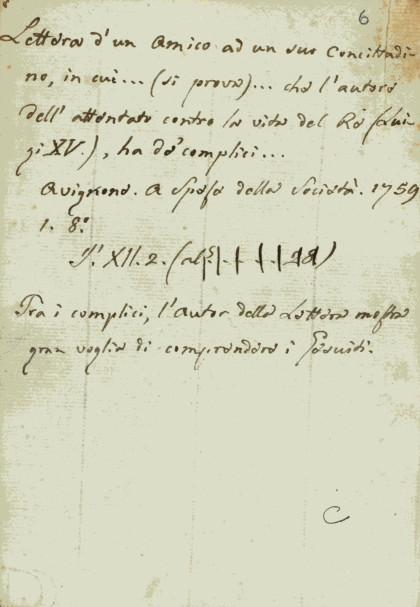 6
Lettera d'un Amico ad un suo Concittadi-
no, in cui... (si prova)... che l'autore
dell' attentato contro la vita del Rè (Lui-
gi XV.), ha de' complici...
Avignone. A Spese della Società. 1759
1. 8.°
XII. 2. (al
Tra i complici, l'Autor della Lettera mostra
gran voglia di comprendere i Gesuiti.
C